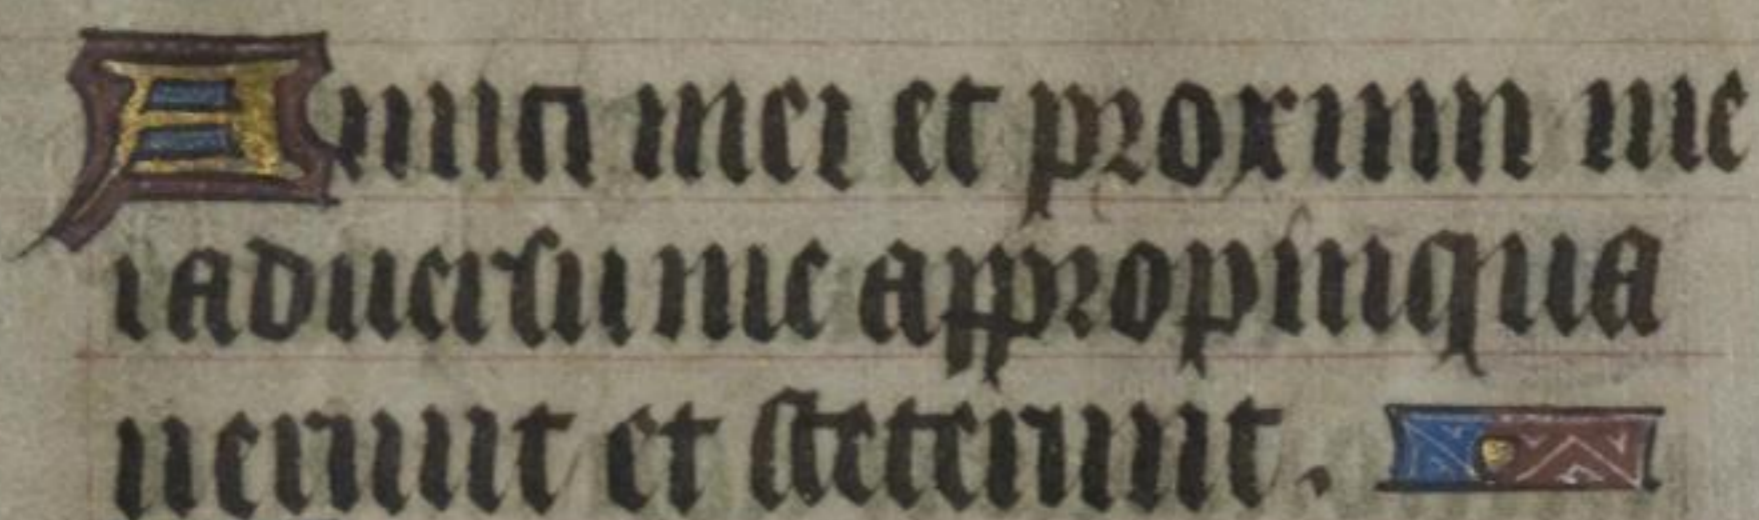 Amici mei et proximi me
i aduersu me appropinqua
uerunt et steterunt.